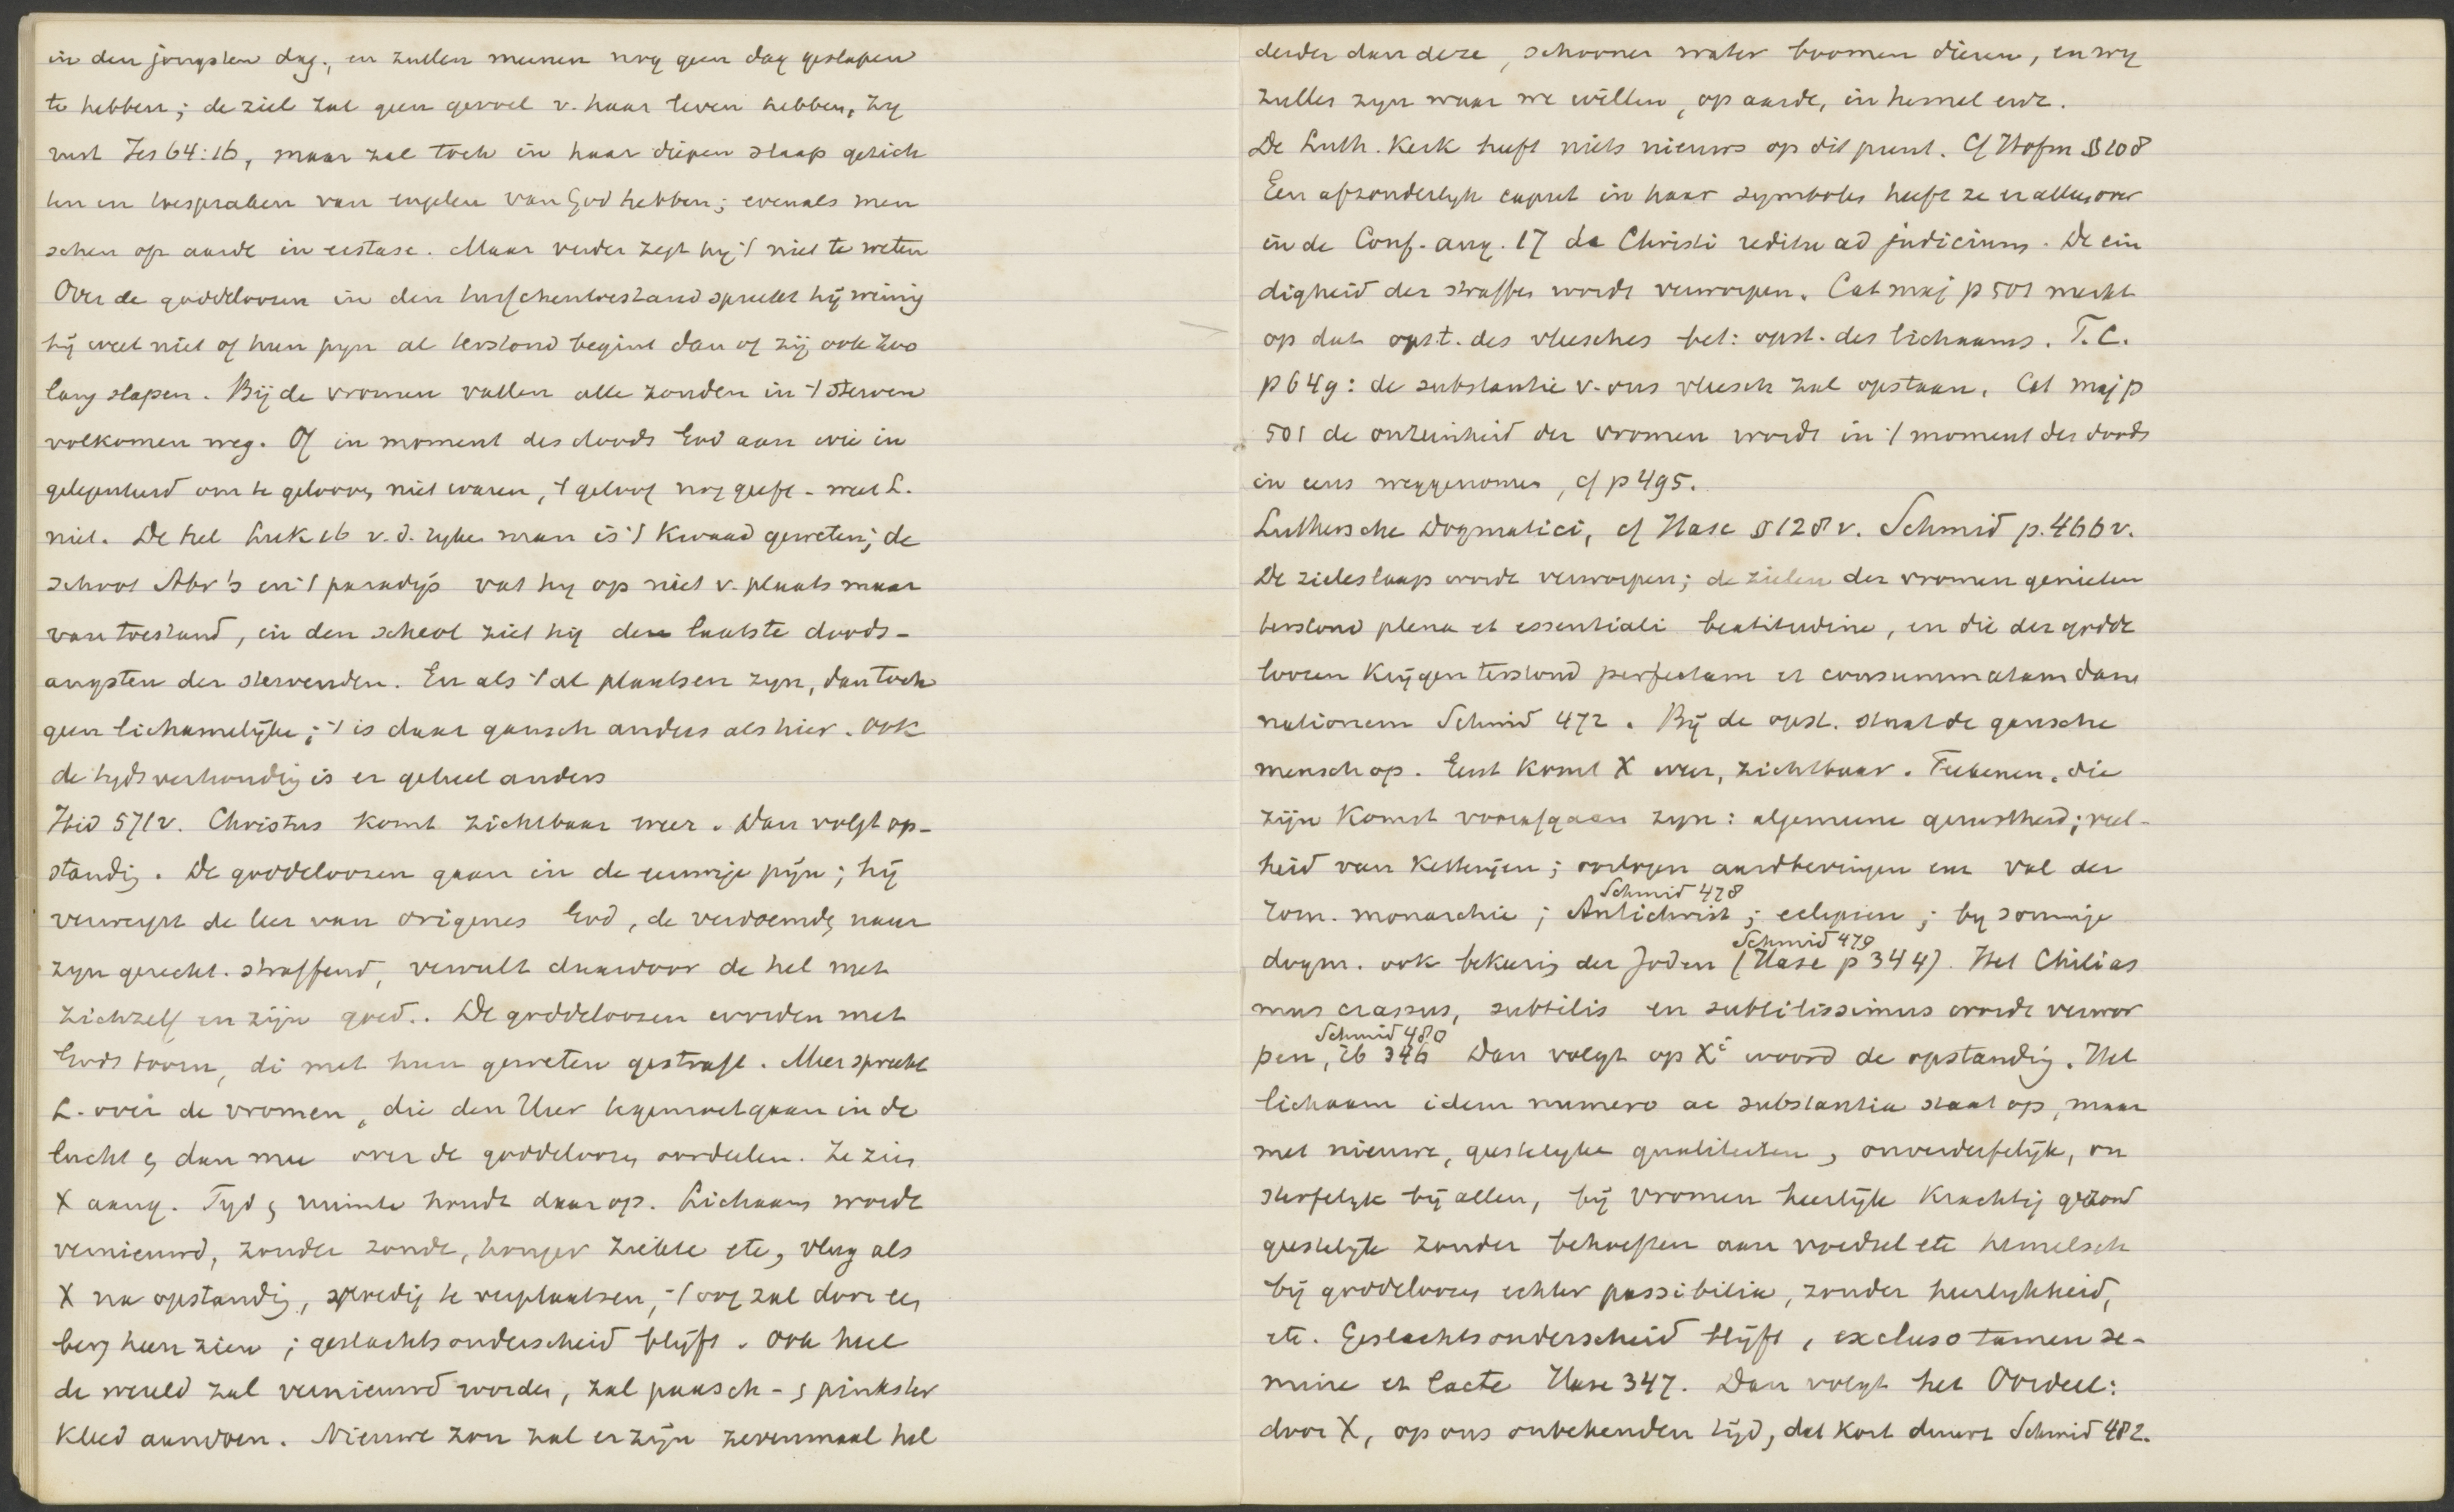 in den jongsten dag., en zullen meenen nog geen dag geslapen
te hebben; de ziel zal geen gevoel v. haar leven hebben, zy
rust Jes 64:16, maar zal toch in haar diepen slaap gezich
ten en toespraken van engelen van God hebben; evenals men
schen op aarde in ecstase. Maar verder zegt hy 't niet te weten
Over de goddeloozen in den tusschentoestand spreekt hij weinig
hij weet niet of hun pyn al terstond begint dan of zij ook zoo
lang slapen. Bij de vromen vallen alle zonden in 't sterven
volkomen weg. Of in moment des doods God aan wie in
gelegenheid om te gelooven niet waren, 't geloof nog geeft - weet L.
niet. De hel Luk 16 v. d. ryke man is 't kwaad geweten; de
schoot Abr's en 't paradijs vat hy op niet v. plaats maar
van toestand, in den scheol ziet hij de laatste doods-
angsten der stervenden. En als 't al plaatsen zyn, dan toch
geen lichamelijke; 't is daar gansch anders als hier. Ook
de tydsverhouding is er geheel anders
Ibid 571v. Christus komt zichtbaar weer. Dan volgt op-
standig. De goddeloozen gaan in de eeuwige pijn; hij
verwerpt de leer van Origenes God, de verdoemde naar
zyn gerecht. straffend, vervult daardoor de hel met
zichzelf en zijn goed.. De goddeloozen worden met
Gods toorn, di met hun geweten gestraft. Meer spreekt
L. over de vromen, die den Heer tegemoetgaan in de
lucht en dan mee over de goddeloozen oordeelen. Ze zien
X aang. Tyd en ruimte houdt daar op. Lichaam wordt
vernieuwd, zonder zonde, honger ziekte etc, vlug als
X na opstandig, spoedig te verplaatsen, 't oog zal door een
berg heen zien; geslachtsonderscheid blijft. Ook heel
de wereld zal vernieuwd worden, zal paasch- en pinkster
kleed aandoen. Nieuwe zon zal er zijn zevenmaal hel
derder dan deze, schooner water boomen dieren, en wy
zullen zyn waar we willen, op aarde, in hemel enz.
De Luth. Kerk heeft niets nieuws op dit punt. Cf Hofm §108
Een afzonderlyk caput in haar symbolen heeft ze er alleen over
in de Conf. aug. 17 de Christi reditu ad judicium. De ein
digheid der straffen wordt verworpen. Cat maj p 501 merkt
op dat opst. des vleesches bet: opst. des lichaams. F. C.
p 649: de substantie v. ons vleesch zal opstaan. Cat maj p
501 de onreinheid der vromen wordt in 't moment des doods
in eens weggenomen, cf p 495.
Luthersche Dogmatici, cf Hase §128v. Schmid p. 466v.
De zieleslaap wordt verworpen; de zielen der vromen genieten
terstond plena et essentiali beatitudine, en die der godde
loozen krijgen terstond perfectam et consummatam dam
nationem Schmid 472. Bij de opst. staat de gansche
mensch op. Eerst komt X weer, zichtbaar. Teekenen, die
zijn komst voorafgaan zyn: algemeene gerustheid; veel-
heid van ketterijen; oorlogen aardbevingen enz val der
Schmid 478
rom. monarchie; Antichrist; eclipsen; by sommige
Schmid 479
dogm. ook bekeering der Joden (Hase p 344). Het Chilias
mus crassus, subtilis en subtilissimus wordt verwor
Schmid 480
pen, ib 346 Dan volgt op Xi woord de opstandig. Het
lichaam idem numero ac substantia staat op, maar
met nieuwe, geestelyke qualiteiten, onverderfelijk, on
sterfelyk bij allen, bij vromen heerlijk krachtig gezond
geestelyk zonder behoeften aan voedsel etc hemelsch
bij goddeloozen echter passibilia, zonder heerlykheid,
etc. Geslachtsonderscheid blijft, excluso tamen se-
mine et lacte Hase 347. Dan volgt het Oordeel:
door X, op ons onbekenden tijd, dat kort duurt Schmid 482.